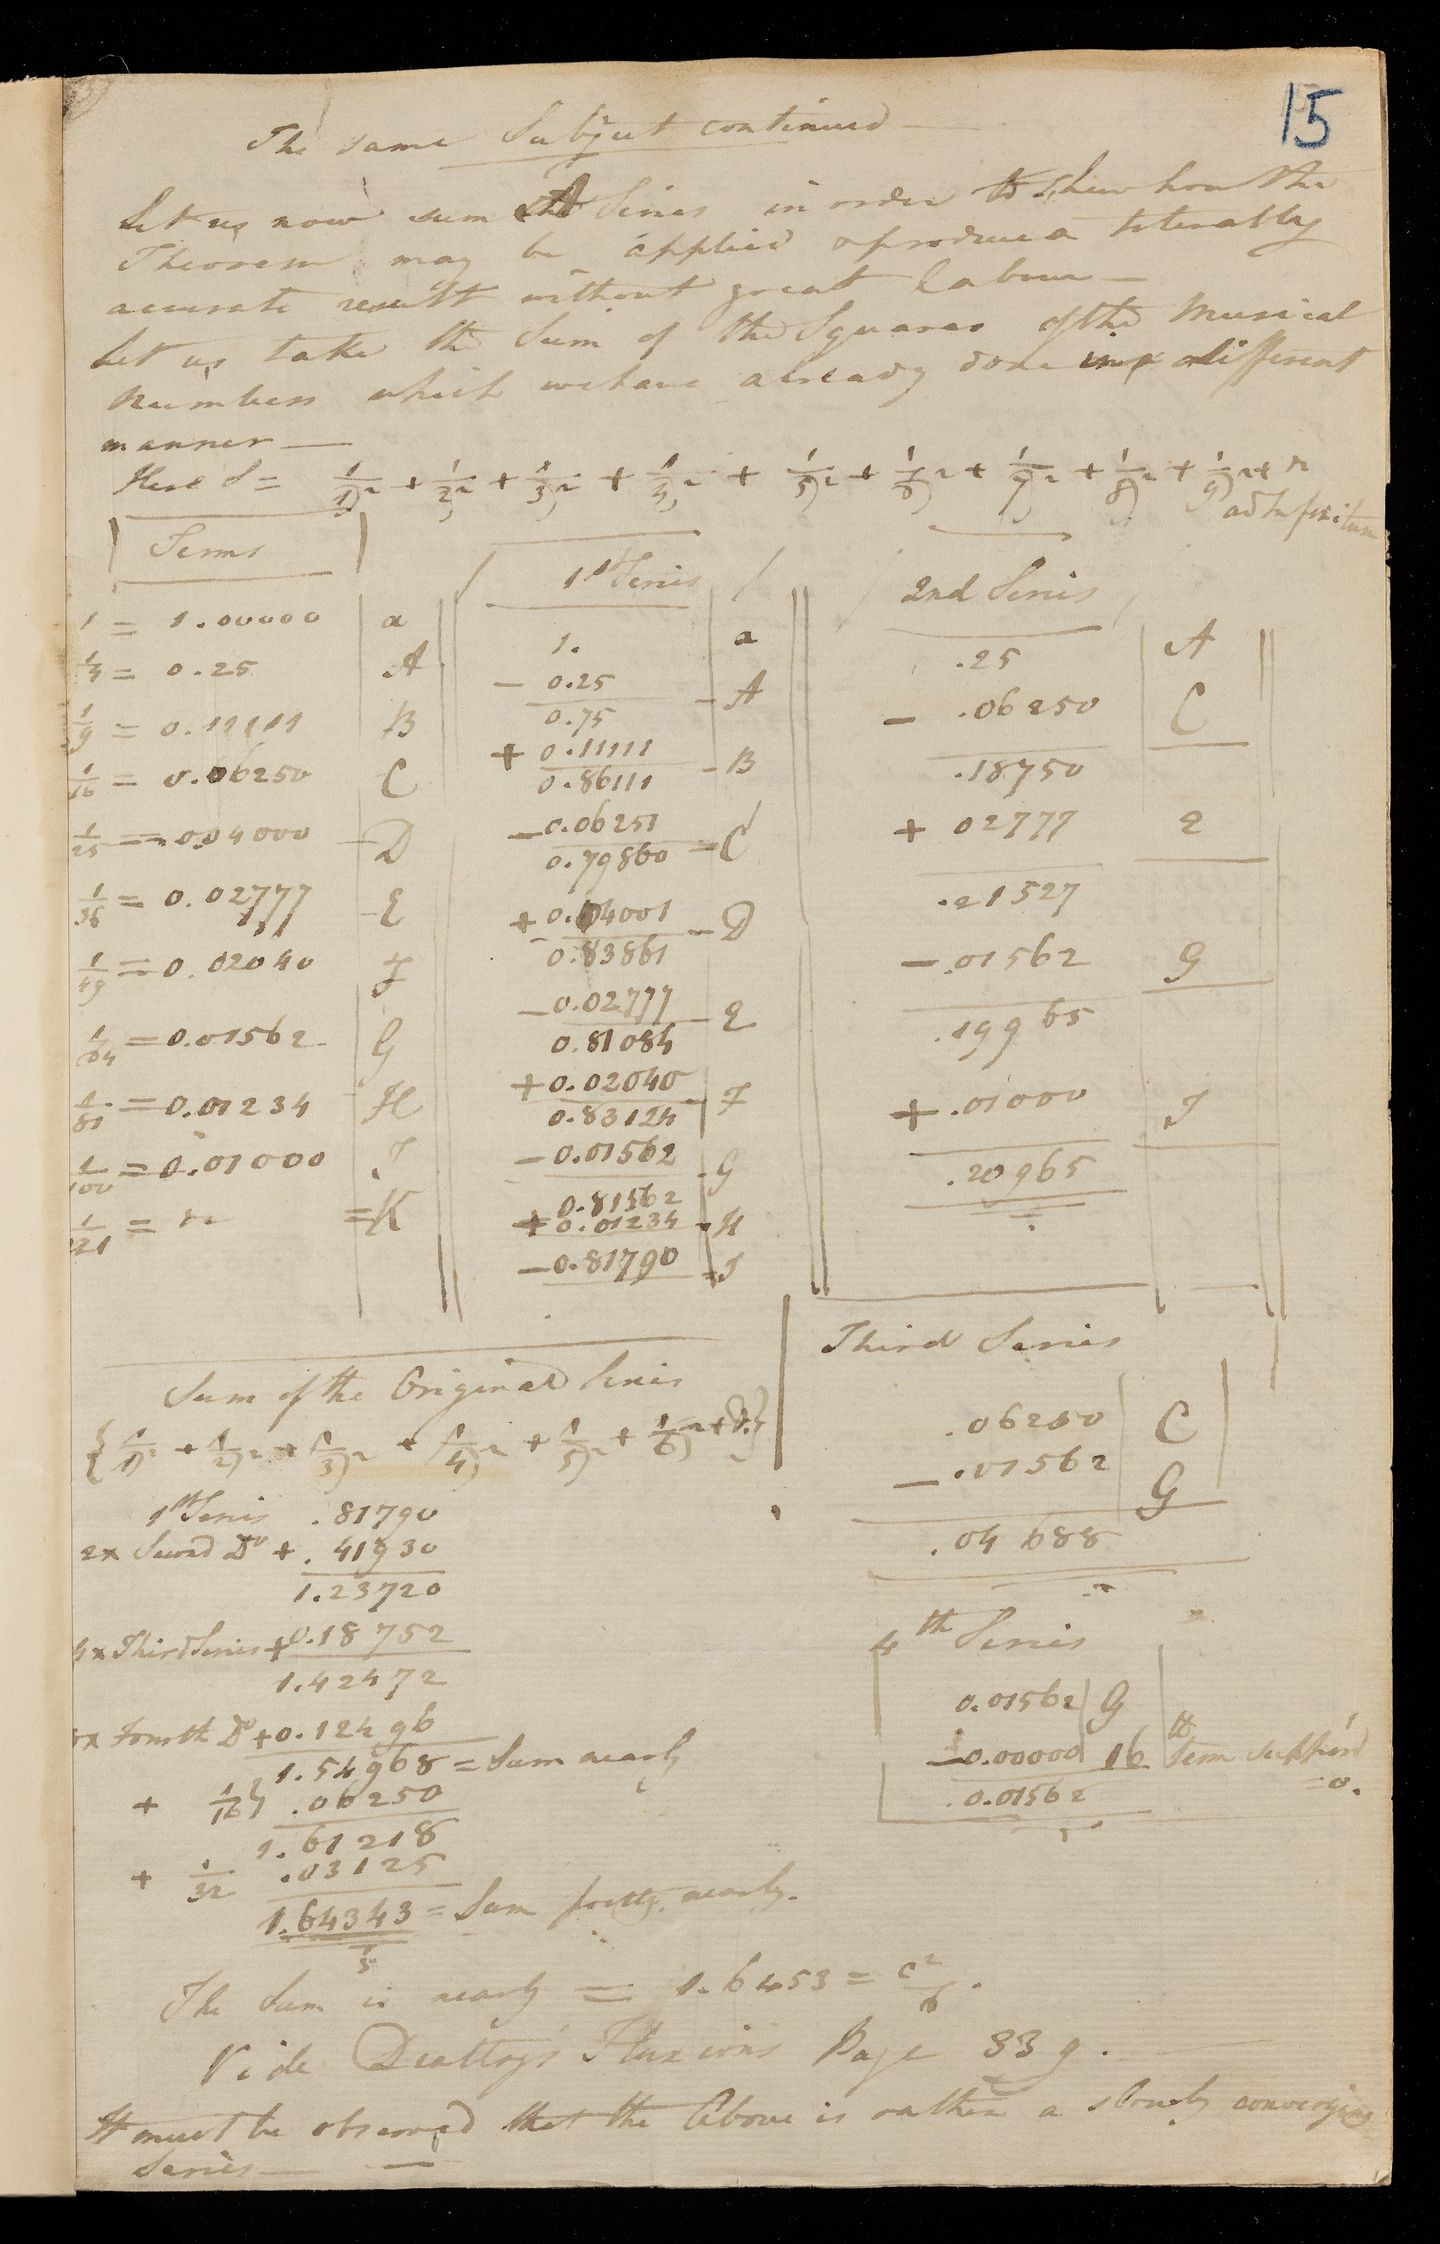 15
The same Subject continued —
Let us now sum a Series in order to shew how the
Theorem may be applied & produce a tolerably
accurate result without great labour —
Let us take the Sum of the Squares of the Musical
Numbers which we have already done in a different
manner —
Here S = 1/1)² + 1/2)² + 1/3)² + 1/4)² + 1/5)² + 1/6)² + 1/7)² + 1/8)² + 1/9)² +
ad Infinitum
Terms
1 = 1.00000 a
1/4 = 0.25 A
1/9 = 0.11111 B
1/16 = 0.06250 C
1/25 = 0.04000 D
1/36 = 0.02777 E
1/49 = 0.02040 F
1/64 = 0.01562 G
1/81 = 0.01234 H
1/100 = 0.01000 I
1/121 = = K
1st Series
1. a
- 0.25 - A
0.75
+ 0.11111 - B
0.86111
- 0.06251 = C
0.79860
+ 0.04001 - D
0.83861
- 0.02777 - E
0.81084
+ 0.02040 - F
0.83124
- 0.01562 - G
0.81562
+ 0.01234 - H
- 0.81790 - I
2nd Series
.25 A
- .06250 C
.18750
+ 02777 E
.21527
- .01562 G
.19965
+ .01000 I
.20965
Third Series
.06250 C
- .01562 G
.04688
4th Series
0.01562 G
- 0.00000 16th Term suppos'd
= 0.
0.01562
Sum of the Original Series
{1/1)² + 1/2)² + 1/3)² + 1/4)² + 1/5)² + 1/6)² + &.}
1st Series .81790
2x Second Do + .41930
1.23720
4x Third Series + 0.18752
1.42472
8x Fourth Do + 0.12496
1.54968 = Sum nearly
+ 1/16} .06250
1.61218
+ 1/32 .03125
1.64343 = Sum pretty nearly.
The Sum is nearly = 1.6453 = c²/6.
Vide Dealtry's Fluxions Page 339. —
It must be observed that the Above is rather a slowly converging
Series — —